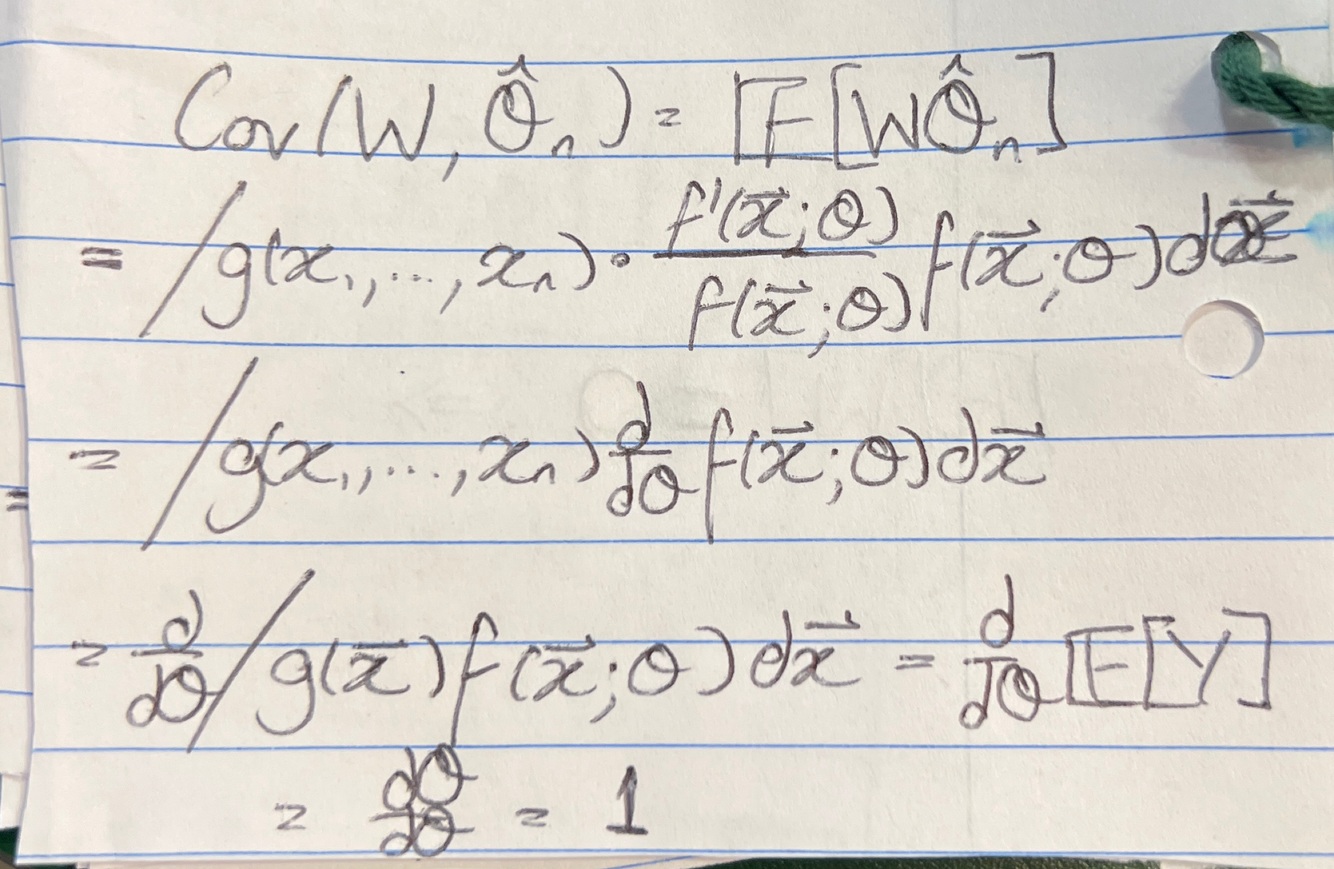 Cov(W, θ̂ₙ) = 𝔼[Wθ̂ₙ]
= ∫g(x₁,...,xₙ)·f'(x⃗;θ)/f(x⃗;θ) f(x⃗;θ)dx⃗
= ∫g(x₁,...,xₙ) d/dθ f(x⃗;θ)dx⃗
= d/dθ ∫g(x⃗)f(x⃗;θ)dx⃗ = d/dθ 𝔼[Y]
= dθ/dθ = 1